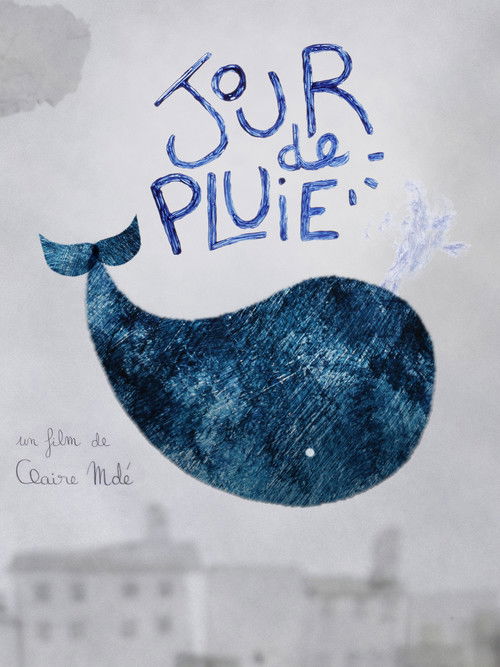 JOUR
de
PLUiE
un film de
Claire Mdé